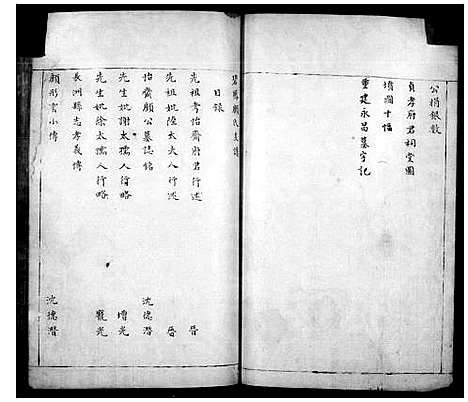 公捐銀數
貞孝府君祠堂圖
墻圖十幅
重建永昌墓亨記
顧氏支譜
目錄
先祖考怡齋府君行述 晉
先祖妣陸太夫人行述 晉
怡齋顧公墓誌銘 沈德潛
先生妣謝太孺人行略 增光
先生妣徐太孺人行略 觀光
長洲縣志孝義傳
顧彤雲小傳 沈德潛